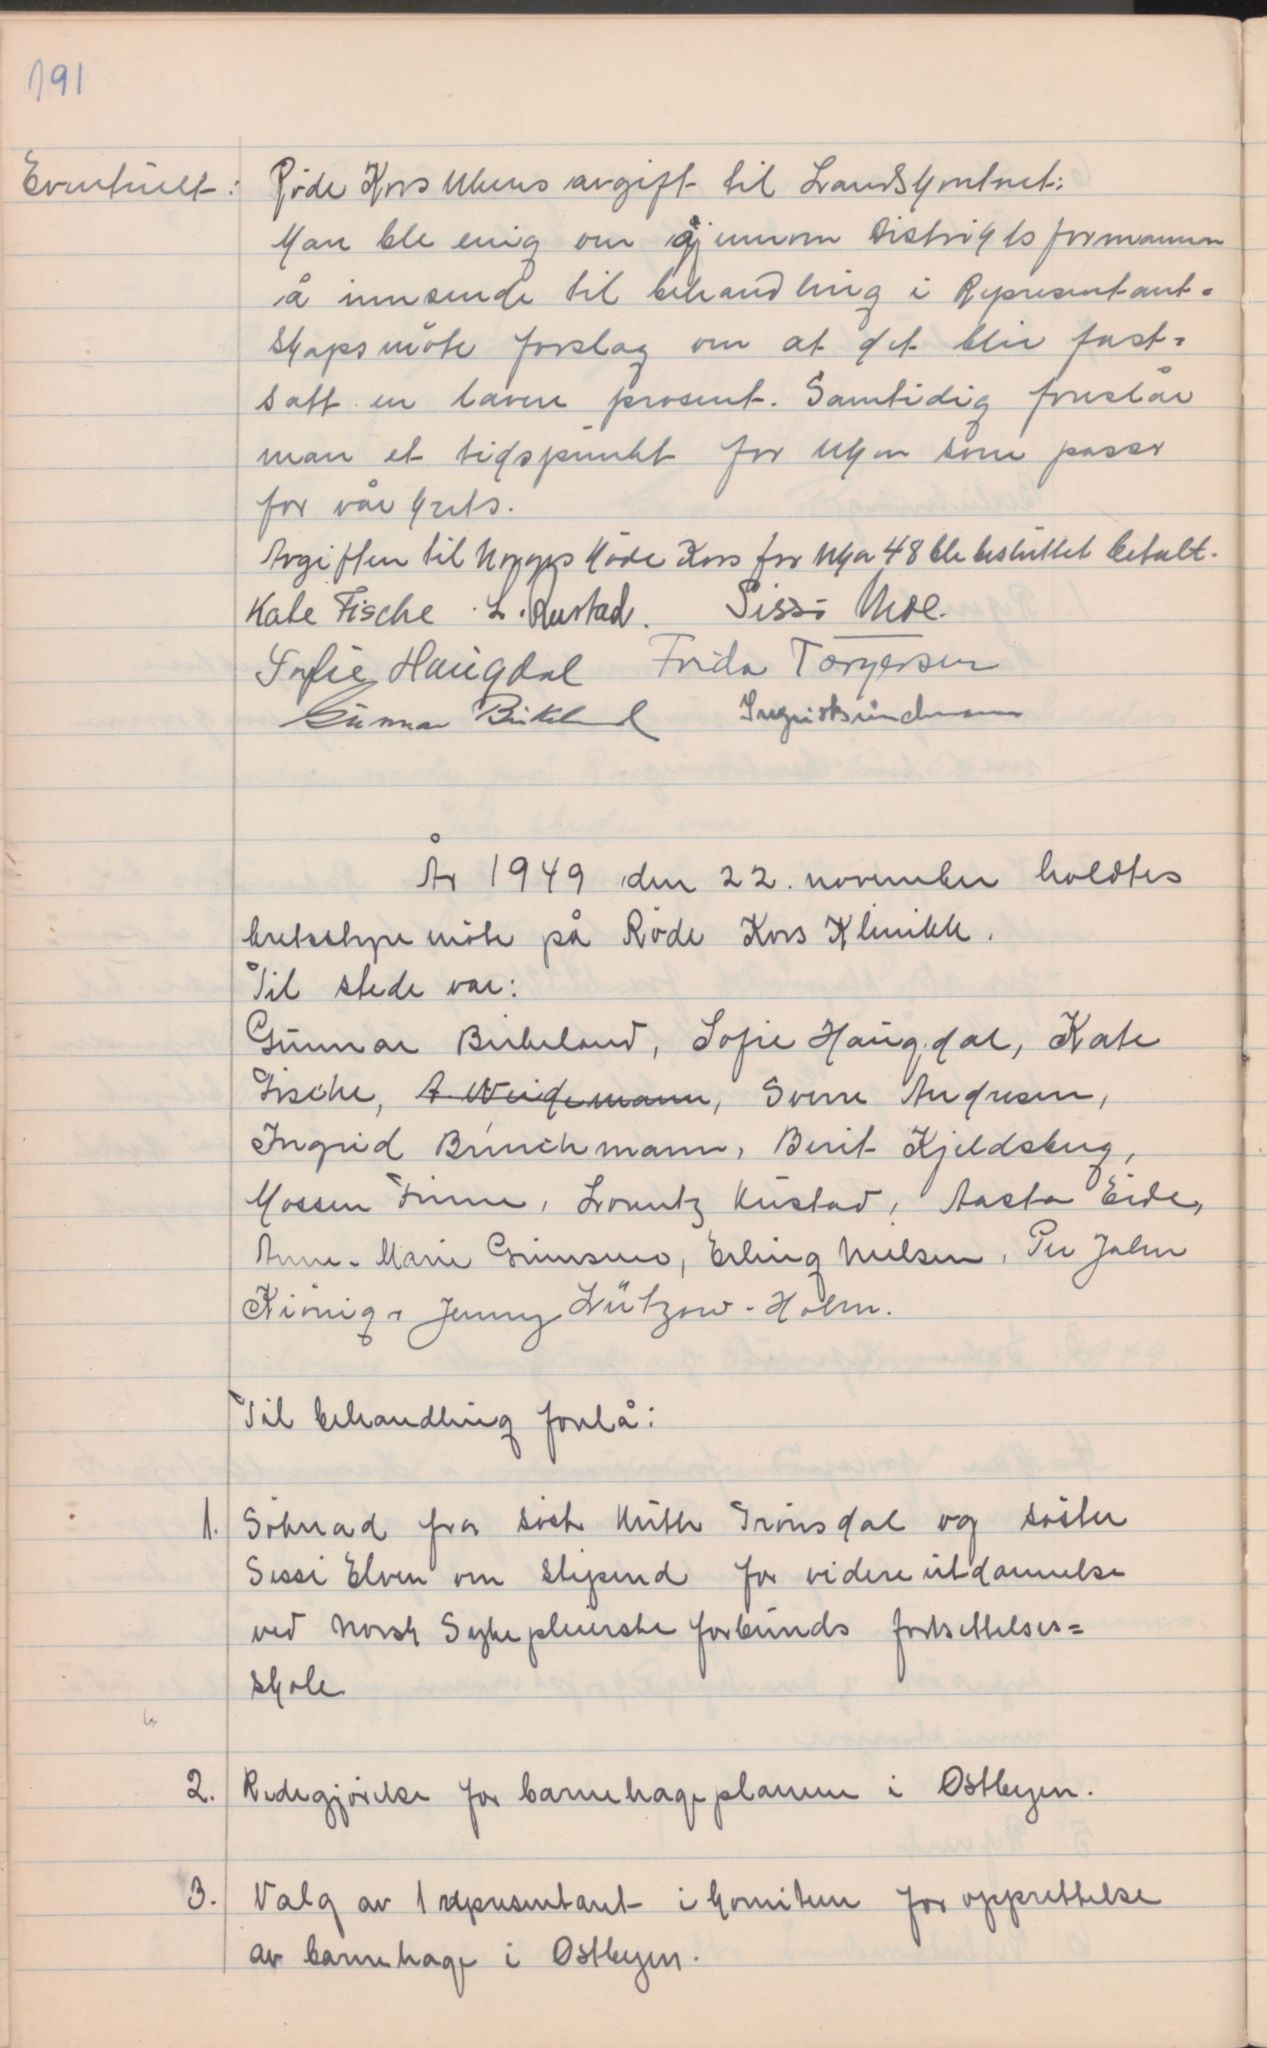 191
Eventuelt: Røde Kors Ukens avgift til Landskontoret:
Man ble enig om gjennom Distriktsformannen
å innsende til behandling i Representant=
skapsmöte forslag om at det blir fast=
satt en lavere prosent. Samtidig foreslår
man et tidspunkt for Uken som passer
for vår krets.
Avgiften til Norges Röde Kors for Uka 48 ble besluttet betalt.
Kate Fische L. Rustad. Sissi Moe.
Sofie Haugdal Frida Torgersen
Gunnar Birkeland Ingrid Bünchmann
År 1949 den 22. november holdtes
kretsstyremöte på Röde Kors Klinikk.
Til stede var:
Gunnar Birkeland, Sofie Haugdal, Kate
Fische, A. Weidemann, Sverre Andresen,
Ingrid Bünchmann, Berit Kjeldsberg,
Mossen Finne, Lorentz Rustad, Aasta Eide,
Anne-Marie Grimsmo, Erling Nielsen, Per John
König, Jenny Lützow-Holm.
Til behandling forelå:
1. Söknad fra söst. Ruth Trönsdal og söster
Sessi Elven om stipend for videreutdannelse
ved Norsk Sykepleierskeforbunds fortsettelses=
skole
2. Redegjörelse for barnehageplanene i Østbyen.
3. Valg av 1 representant i komiteen for opprettelse
av barnehage i Østbyen.